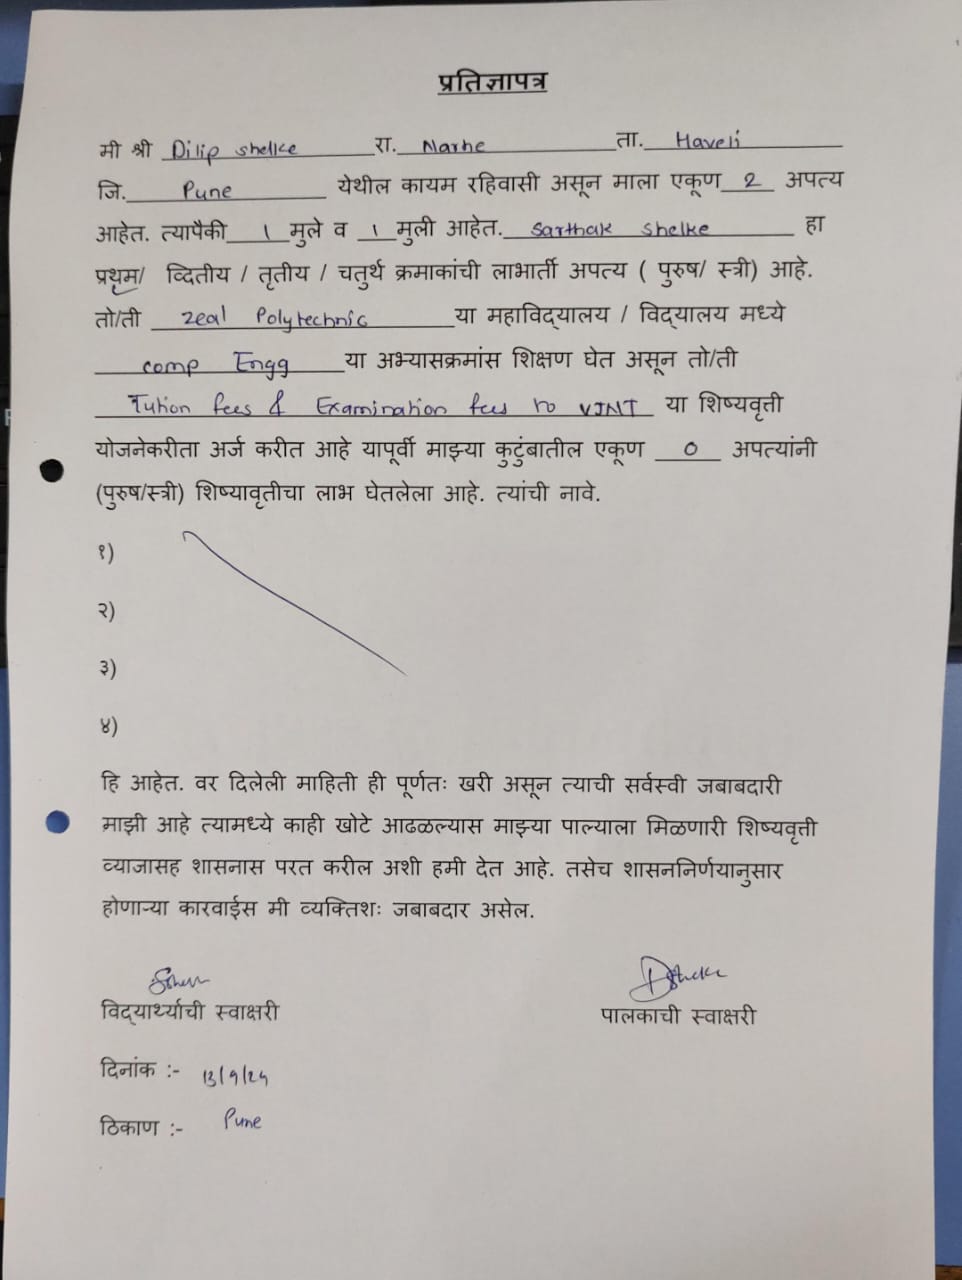 प्रतिज्ञापत्र
मी श्री Dilip shelke रा. Narhe ता. Haveli
जि. Pune येथील कायम रहिवासी असून माला एकूण 2 अपत्य
आहेत. त्यापैकी 1 मुले व 1 मुली आहेत. Sarthak shelke हा
प्रथम/ व्दितीय / तृतीय / चतुर्थ क्रमाकांची लाभार्ती अपत्य ( पुरुष/ स्त्री) आहे.
तो/ती zeal Polytechnic या महाविद्यालय / विद्यालय मध्ये
comp Engg या अभ्यासक्रमांस शिक्षण घेत असून तो/ती
Tution fees & Examination fees to VJNT या शिष्यवृत्ती
योजनेकरीता अर्ज करीत आहे यापूर्वी माझ्या कुटुंबातील एकूण 0 अपत्यांनी
(पुरुष/स्त्री) शिष्यावृतीचा लाभ घेतलेला आहे. त्यांची नावे.
१)
२)
३)
४)
हि आहेत. वर दिलेली माहिती ही पूर्णतः खरी असून त्याची सर्वस्वी जबाबदारी
माझी आहे त्यामध्ये काही खोटे आढळल्यास माझ्या पाल्याला मिळणारी शिष्यवृत्ती
व्याजासह शासनास परत करील अशी हमी देत आहे. तसेच शासननिर्णयानुसार
होणाऱ्या कारवाईस मी व्यक्तिशः जबाबदार असेल.
Dshelke
विद्यार्थ्याची स्वाक्षरी पालकाची स्वाक्षरी
दिनांक :- 13/9/24
ठिकाण :- Pune